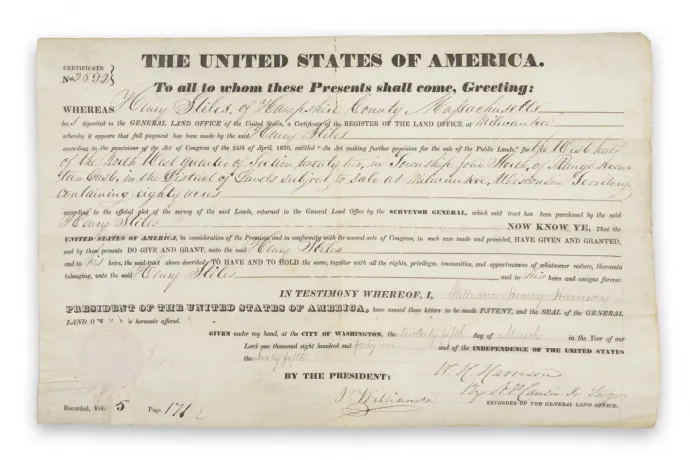 THE UNITED STATES OF AMERICA.
CERTIFICATE
No 2592
To all to whom these Presents shall come, Greeting:
WHEREAS Henry Stiles, of Hampshire County, Massachusetts
ha s deposited in the GENERAL LAND OFFICE of the United States, a Certificate of the REGISTER OF THE LAND OFFICE at Milwaukee
whereby it appears that full payment has been made by the said Henry Stiles
according to the provisions of the Act of Congress of the 24th of April, 1820, entitled "An Act making further provision for the sale of the Public Lands," for the West half
of the North West quarter of Section twenty two, in Township four North, of Range
teen East, in the District of Lands subject to sale at Milwaukee, Wisconsin Territory,
containing eighty acres
according to the official plat of the survey of the said Lands, returned to the General Land Office by the SURVEYOR GENERAL, which said tract has been purchased by the said
Henry Stiles NOW KNOW YE, That the
UNITED STATES OF AMERICA, in consideration of the Premises, and in conformity with the several acts of Congress, in such case made and provided, HAVE GIVEN AND GRANTED,
and by these presents DO GIVE AND GRANT, unto the said Henry Stiles
and to his heirs, the said tract above described: TO HAVE AND TO HOLD the same, together with all the rights, privileges, immunities, and appurtenances of whatsoever nature, thereunto
belonging, unto the said Henry Stiles and to his heirs and assigns forever.
IN TESTIMONY WHEREOF, I, William Henry Harrison
PRESIDENT OF THE UNITED STATES OF AMERICA, have caused these letters to be made PATENT, and the SEAL of the GENERAL
LAND hereunto affixed.
GIVEN under my hand, at the CITY OF WASHINGTON, the twenty fifth day of March in the Year of our
Lord one thousand eight hundred and forty one and of the INDEPENDENCE OF THE UNITED STATES
the sixty fifth
BY THE PRESIDENT: W. H. Harrison
J Williamson By
RECORDER OF THE GENERAL LAND OFFICE.
Recorded, Vol. 5 Page 171